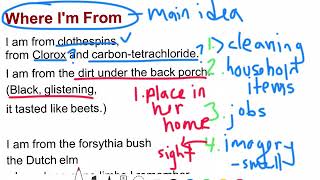 Where I'm From - main idea
I am from clothespins,
from Clorox and carbon-tetrachloride,
I am from the dirt under the back porch.
(Black, glistening,
it tasted like beets.)
I am from the forsythia bush
the Dutch elm
? ?
1. cleaning
2. household
items
3. jobs
4. imagery
- smell
1. place in
her
home
sight